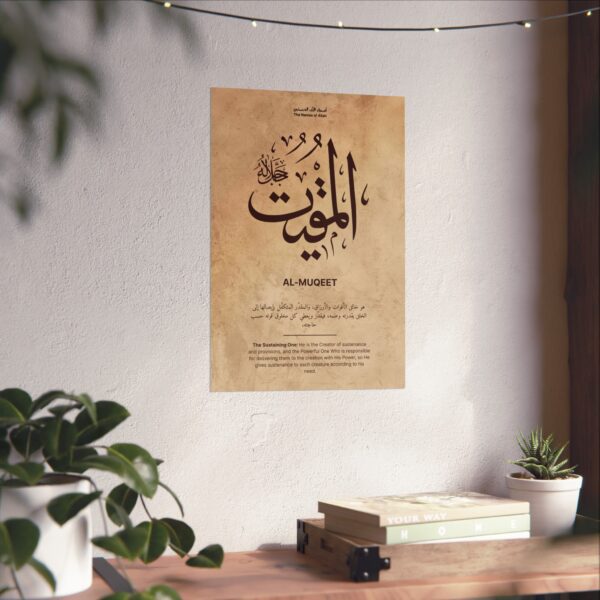 أسماء الله الحسنى
The Names of Allah
المقيت
جل جلاله
AL-MUQEET
هو خالق الأقوات والأرزاق، والمقتدر المتكفل بإيصالها إلى
الخلق بقدرته وعلمه، فيقدر ويعطي كل مخلوق قوته حسب
حاجته.
The Sustaining One: He is the Creator of sustenance
and provisions, and the Powerful One Who is responsible
for delivering them to the creation with His Power, so He
gives sustenance to each creature according to his
need.
YOUR WAY
HOME